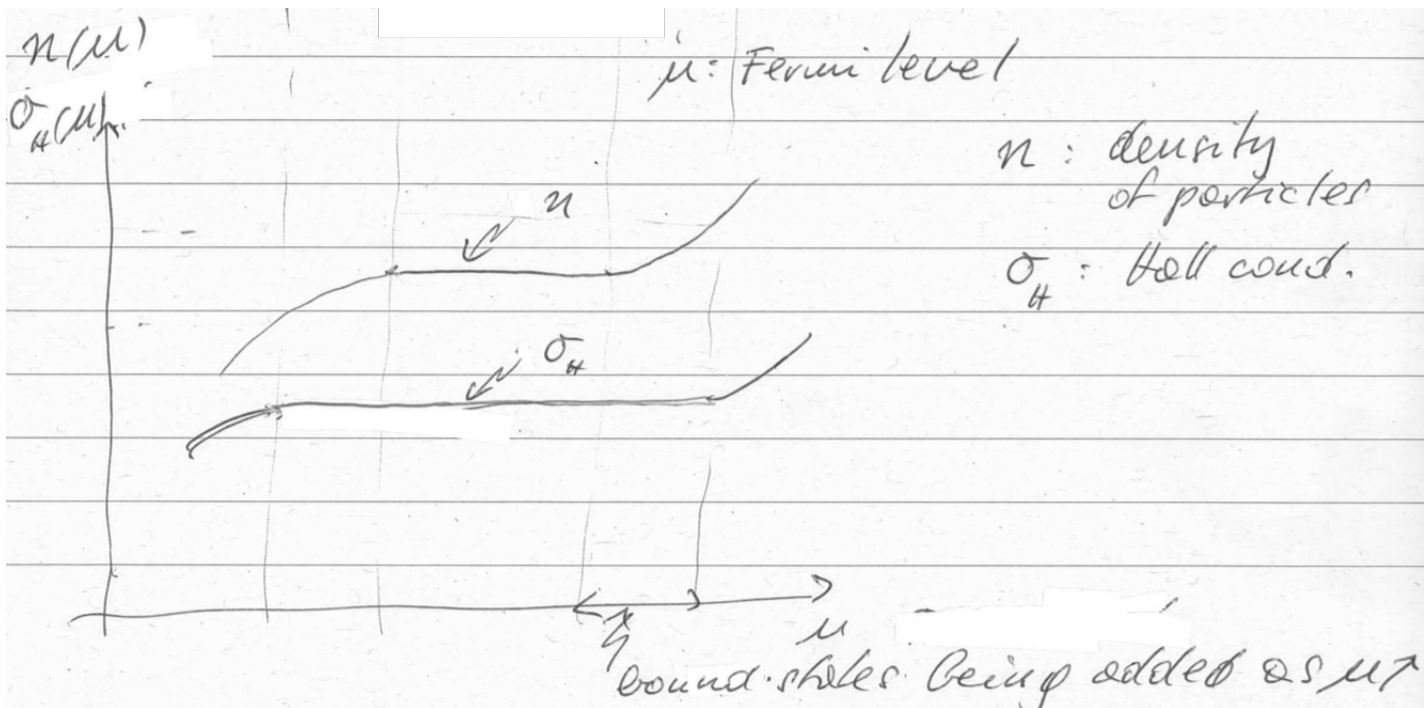 n(μ)
σ_H(μ)
μ: Fermi level
n : density
of particles
σ_H : Hall cond.
n
σ_H
μ
bound states being added as μ↗